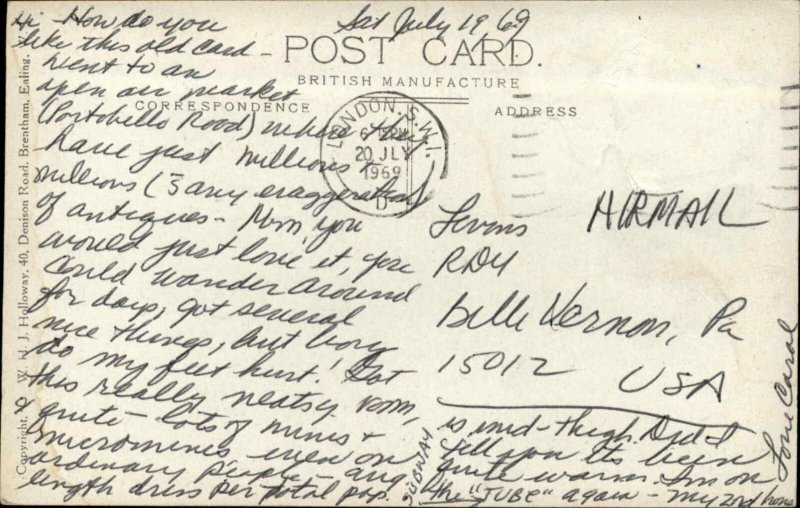 Sat July 19 69
Hi How do you
like this old card -
Went to an
open air market
(Portobello Road) where they
have just millions +
millions (s̄ any exaggeration)
of antiques - Mom you
would just love it, you
could wander around
for days, got several
nice things, but boy
do my feet hurt! Got
this really neatsy room,
quite - lots of minis +
microminis even on
ordinary people - avg
length dress per total pop.
is mid-thigh. Did I
tell you its been
quite warm. Im on
the "TUBE" again - my 2nd home
SUBWAY
Love Carol
POST CARD.
BRITISH MANUFACTURE
CORRESPONDENCE
ADDRESS
LONDON. S.W.1.
6 PM
20 JLY
1969
D
AIRMAIL
Levins
RD4
Belle Vernon, Pa
15012
USA
Copyright, W. H. J. Holloway, 40, Denison Road, Brentham, Ealing, W.